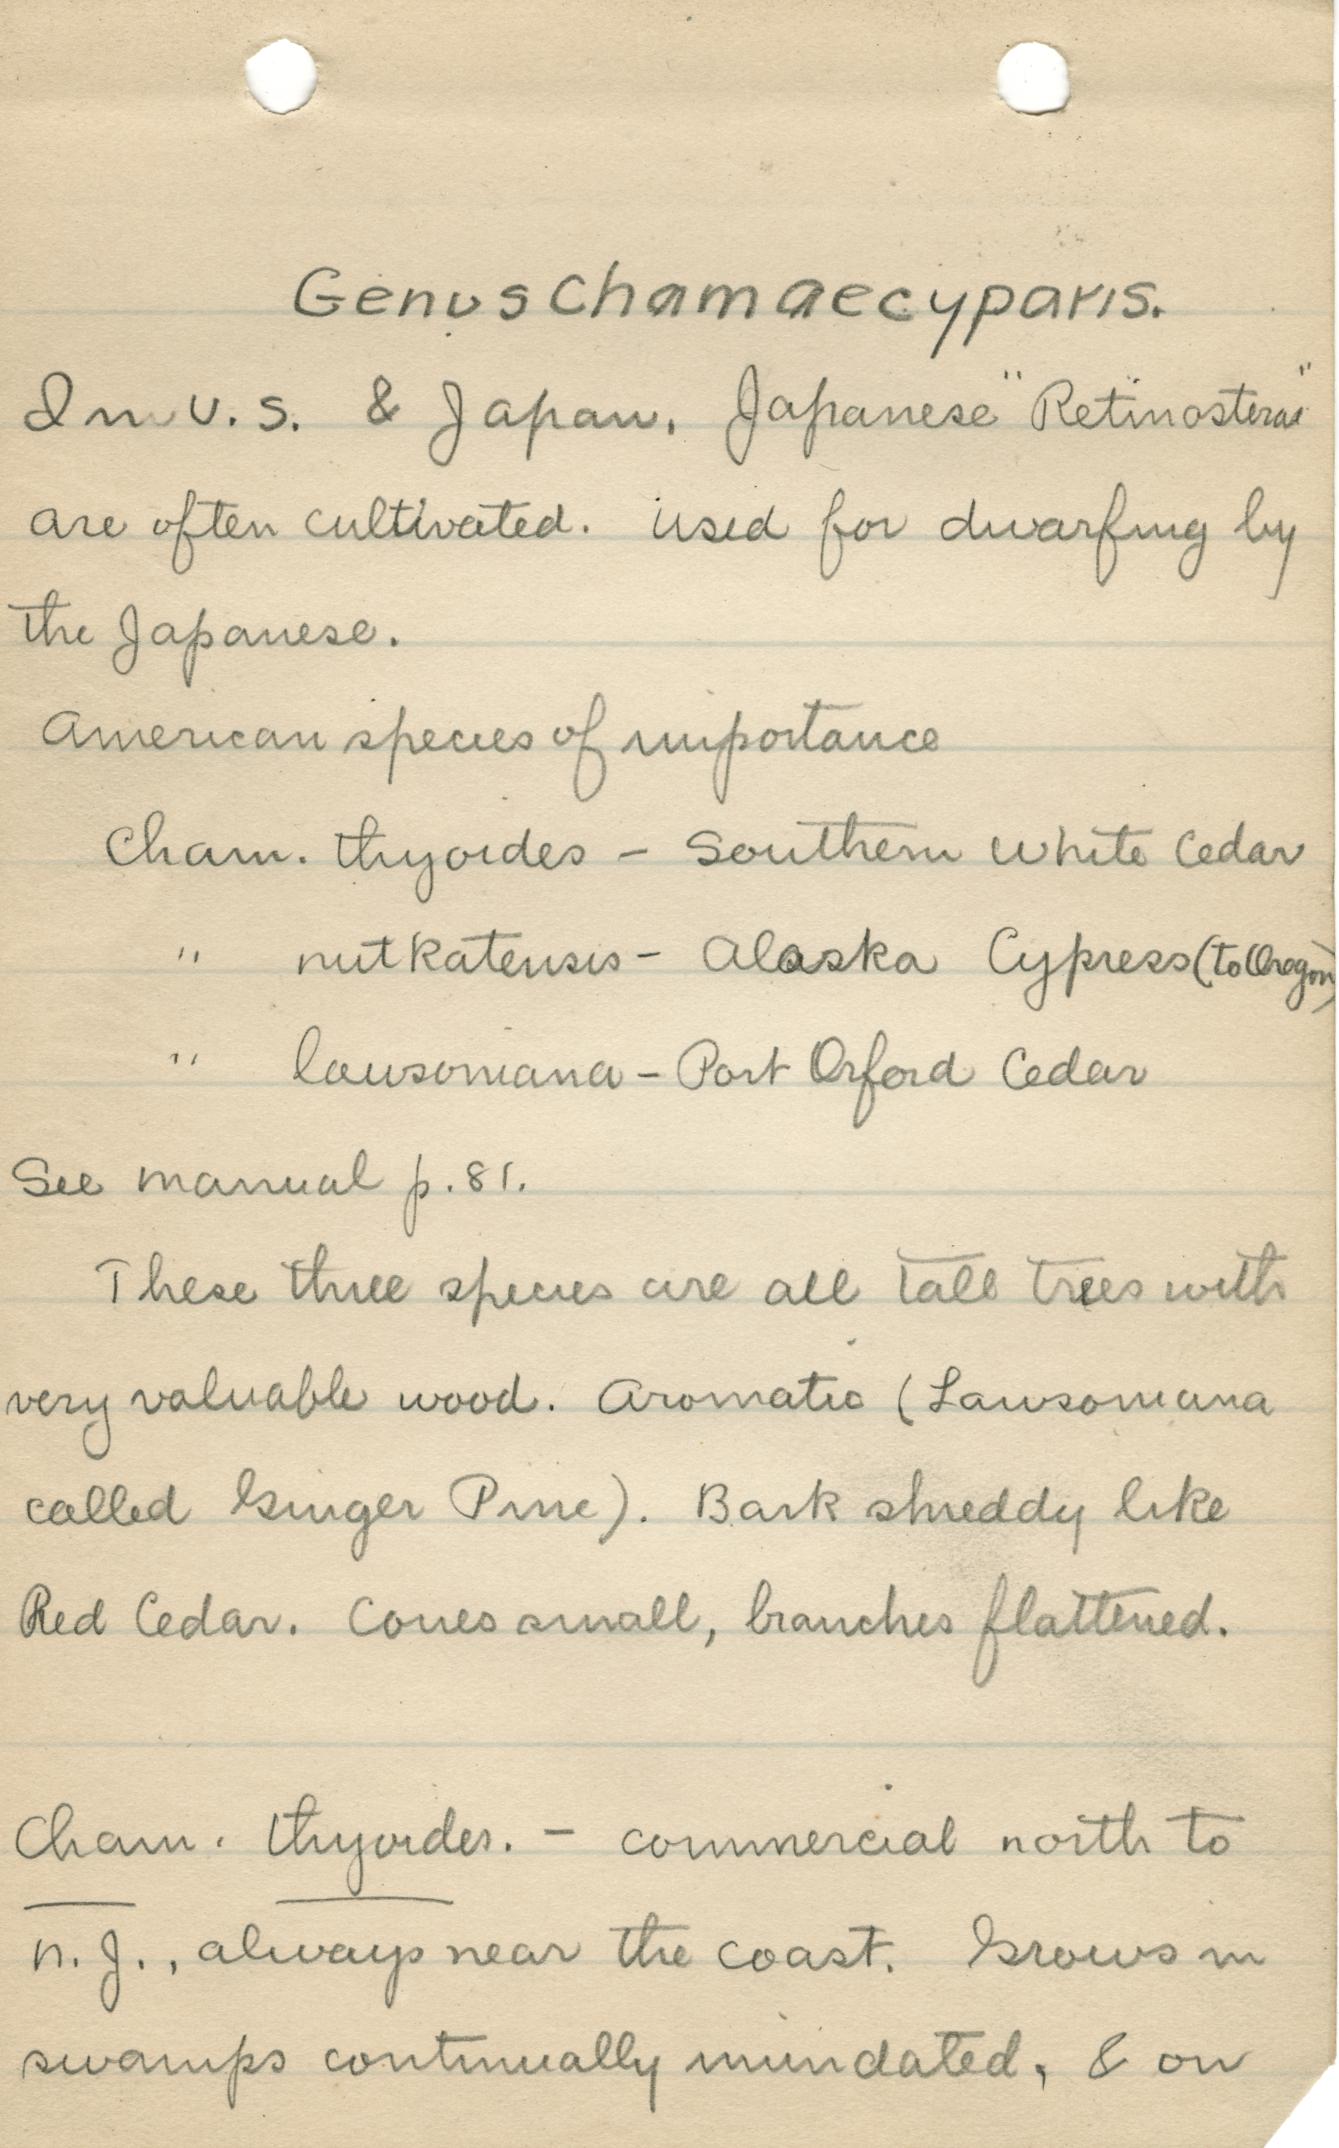 Genus Chamaecyparis.
In U.S. & Japan. Japanese "Retinosteras"
are often cultivated. Used for dwarfing by
the Japanese.
American species of importance
Cham. thyoides - Southern White Cedar
" nutkatensis - Alaska Cypress (to Oregon)
" lawsoniana - Port Orford Cedar
See manual p. 81.
These three species are all tall trees with
very valuable wood. Aromatic (Lawsoniana
called Ginger Pine). Bark shreddy like
Red Cedar. Cones small, branches flattened.
Cham. thyoides. - commercial north to
N.J., always near the coast. Grows in
swamps continually inundated, & on